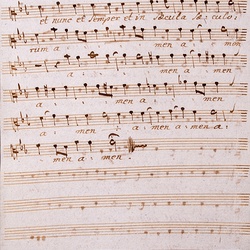 et nunc et semper et in sæcula sæculo,
rum a men a a men
a men a
a men a
a men a a men a
men a men.